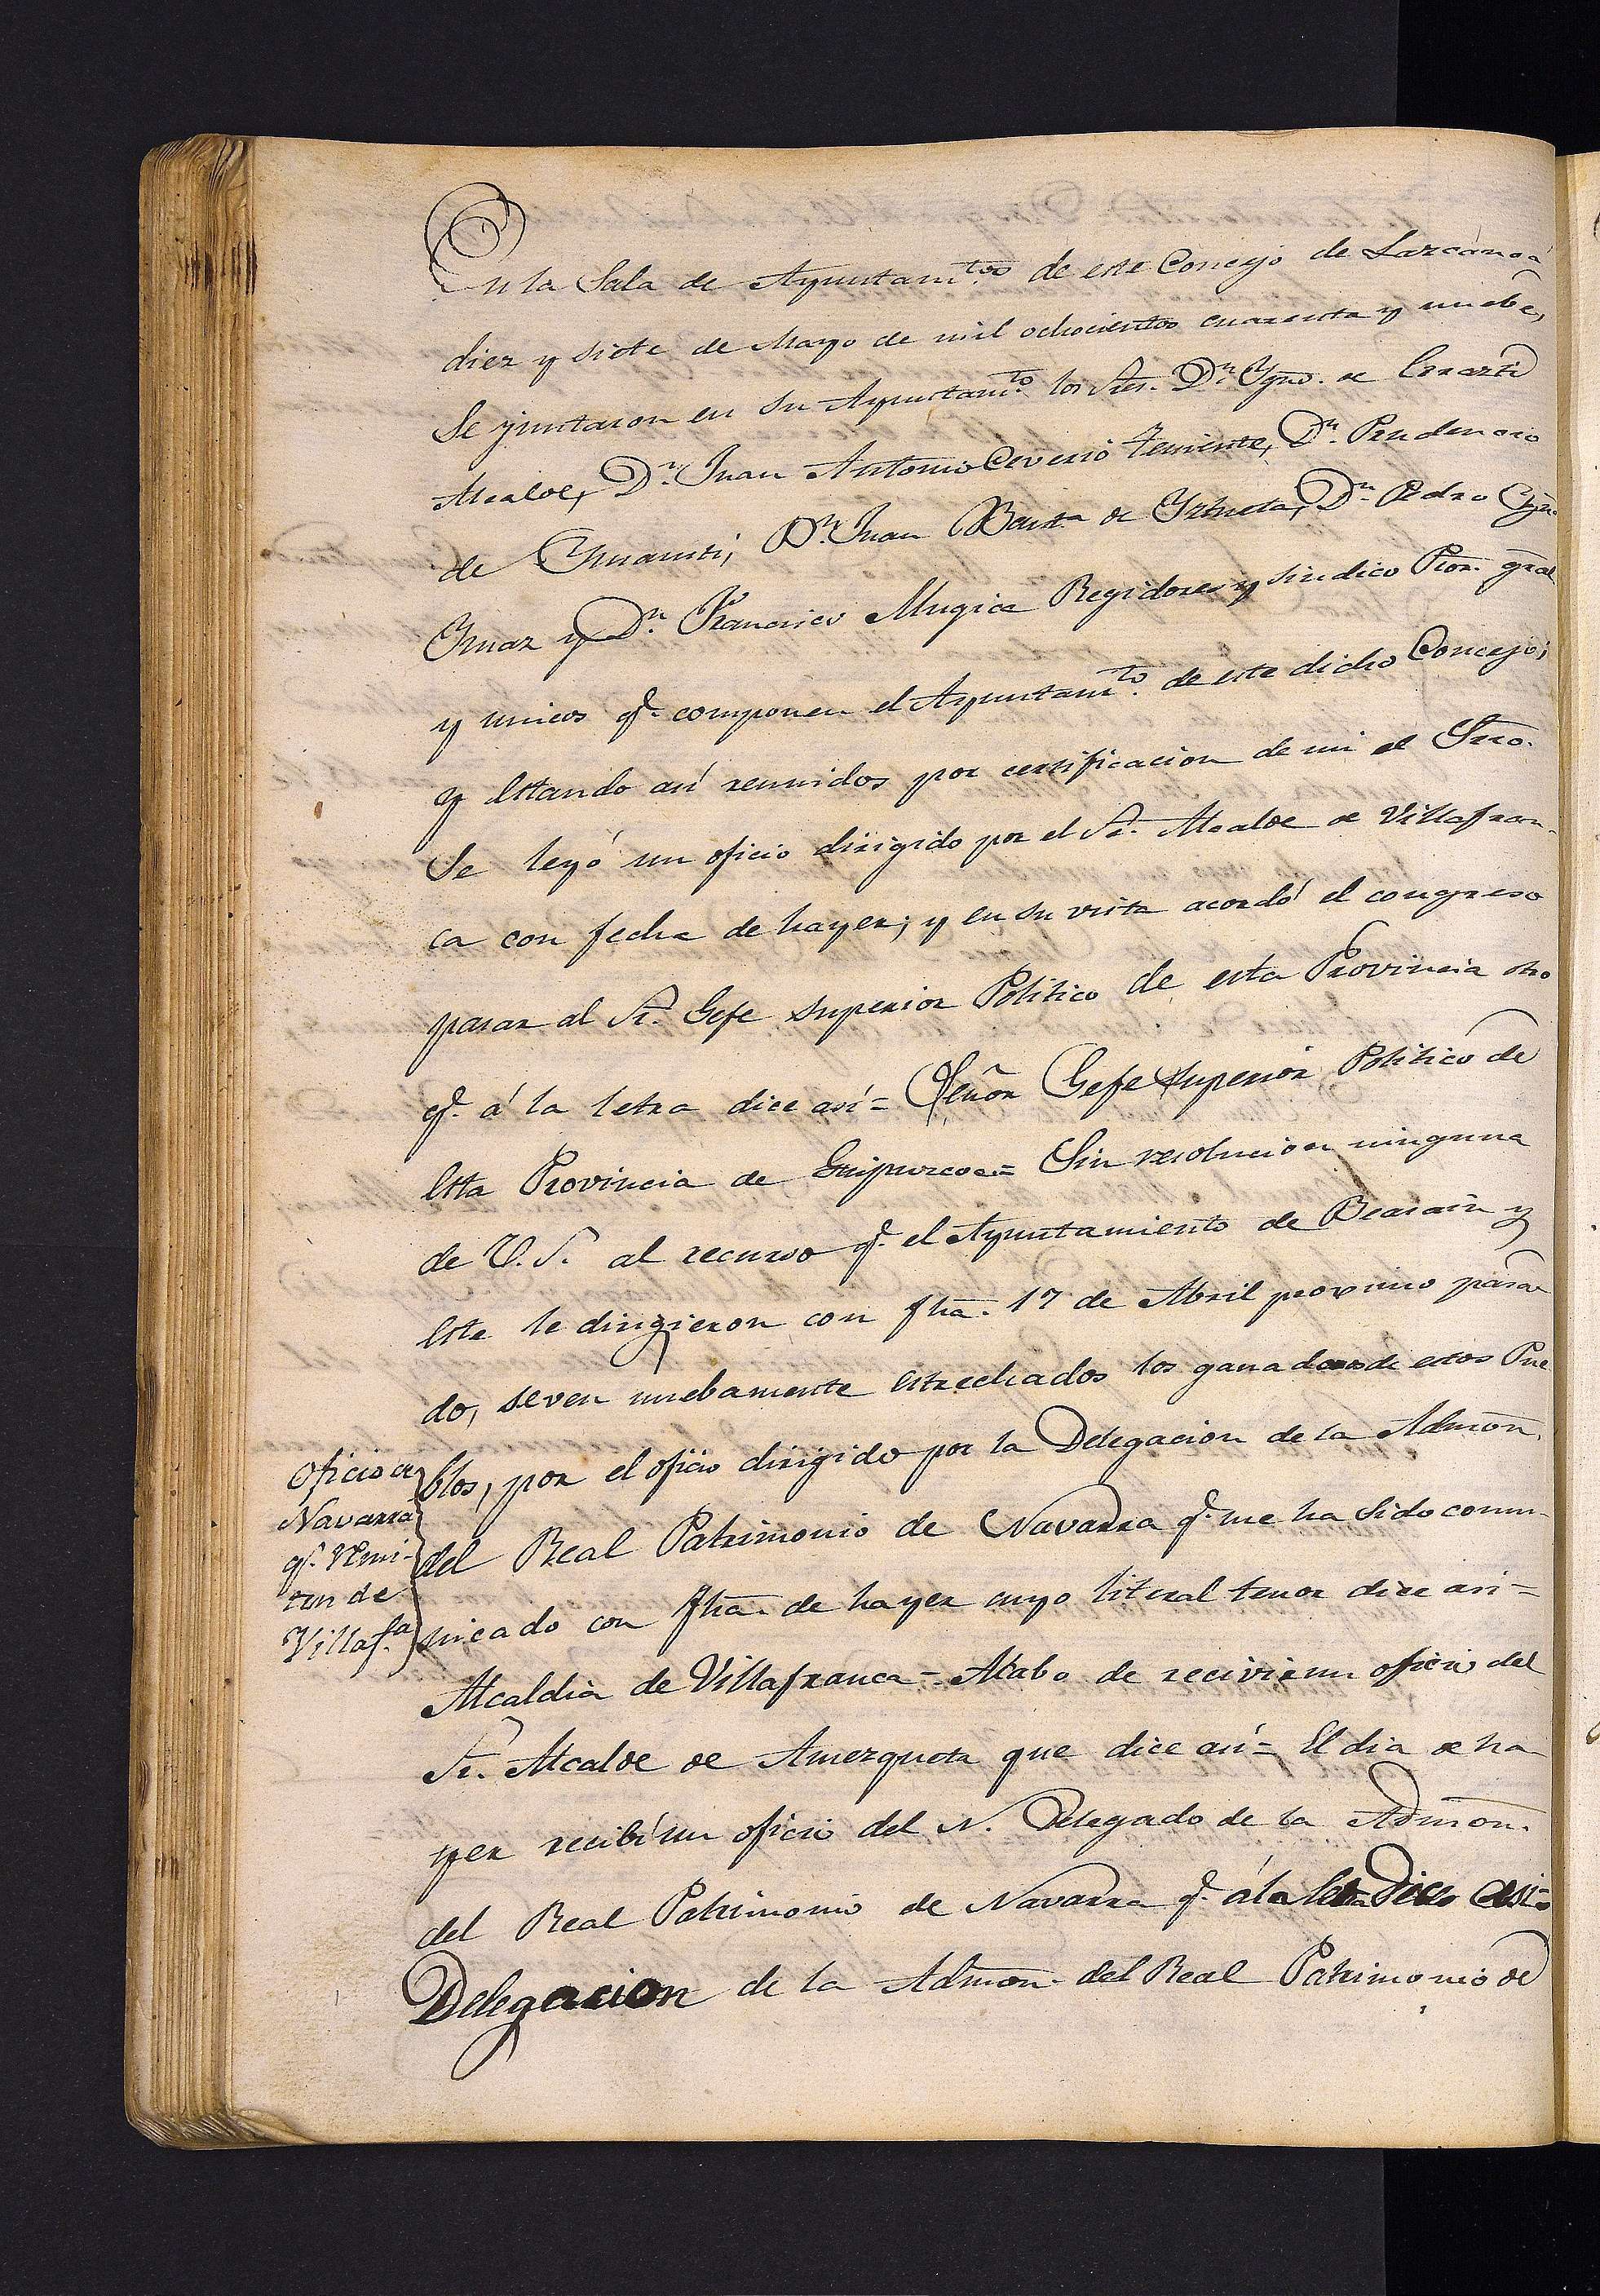 En la Sala de Ayuntam.tos de este Concejo de Lazcano á
diez y siete de Mayo de mil ochocientos cuarenta y nuebe,
Se juntaron en su Ayuntam.to los Sres. D.n Ygno. de
Alcalde, D.n Juan Antonio Ceverio Teniente, D.n Prudencio
de D.n Juan Bauta de Yztueta, D.n Pedro Ygn.
Ymaz y D.n Francisco Mugica Regidores y sindico Pror. gral
y unicos q.e componen el Ayuntam.to de este dicho Concejo;
y estando así reunidos por certificacion de mi el Srio.
Se leyó un oficio dirigido por el Sr. Alcalde de Villafran-
ca con fecha de hayer; y en su vista acordó el congreso
pasar al Sr. Gefe superior Politico de esta Provincia otro
q.e á la letra dice así = Señor Gefe Superior Politico de
esta Provincia de Guipuzcoa = Sin resolucion ninguna
de V.S. al recurso q.e el Ayuntamiento de Beasain y
este le dirigieron con fha. 17 de Abril proximo pasa
do, se ven nuebamente estrechados los ganados de estos Pue
blos, por el oficio dirigido por la Delegacion de la Admon.
del Real Patrimonio de Navarra q.e me ha sido comu-
nicado con fha. de hayer cuyo literal tenor dice asi =
Alcaldia de Villafranca = Acabo de recivir un oficio del
Sr. Alcalde de Amezqueta que dice así = El dia de ha
yer recibí un oficio del S. Delegado de la Admon.
del Real Patrimonio de Navarra q.e á la letra dice asi =
Delegacion de la Admon. del Real Patrimonio de
Oficio de
Navarra
q.e remi-
ten de
Villaf.ca